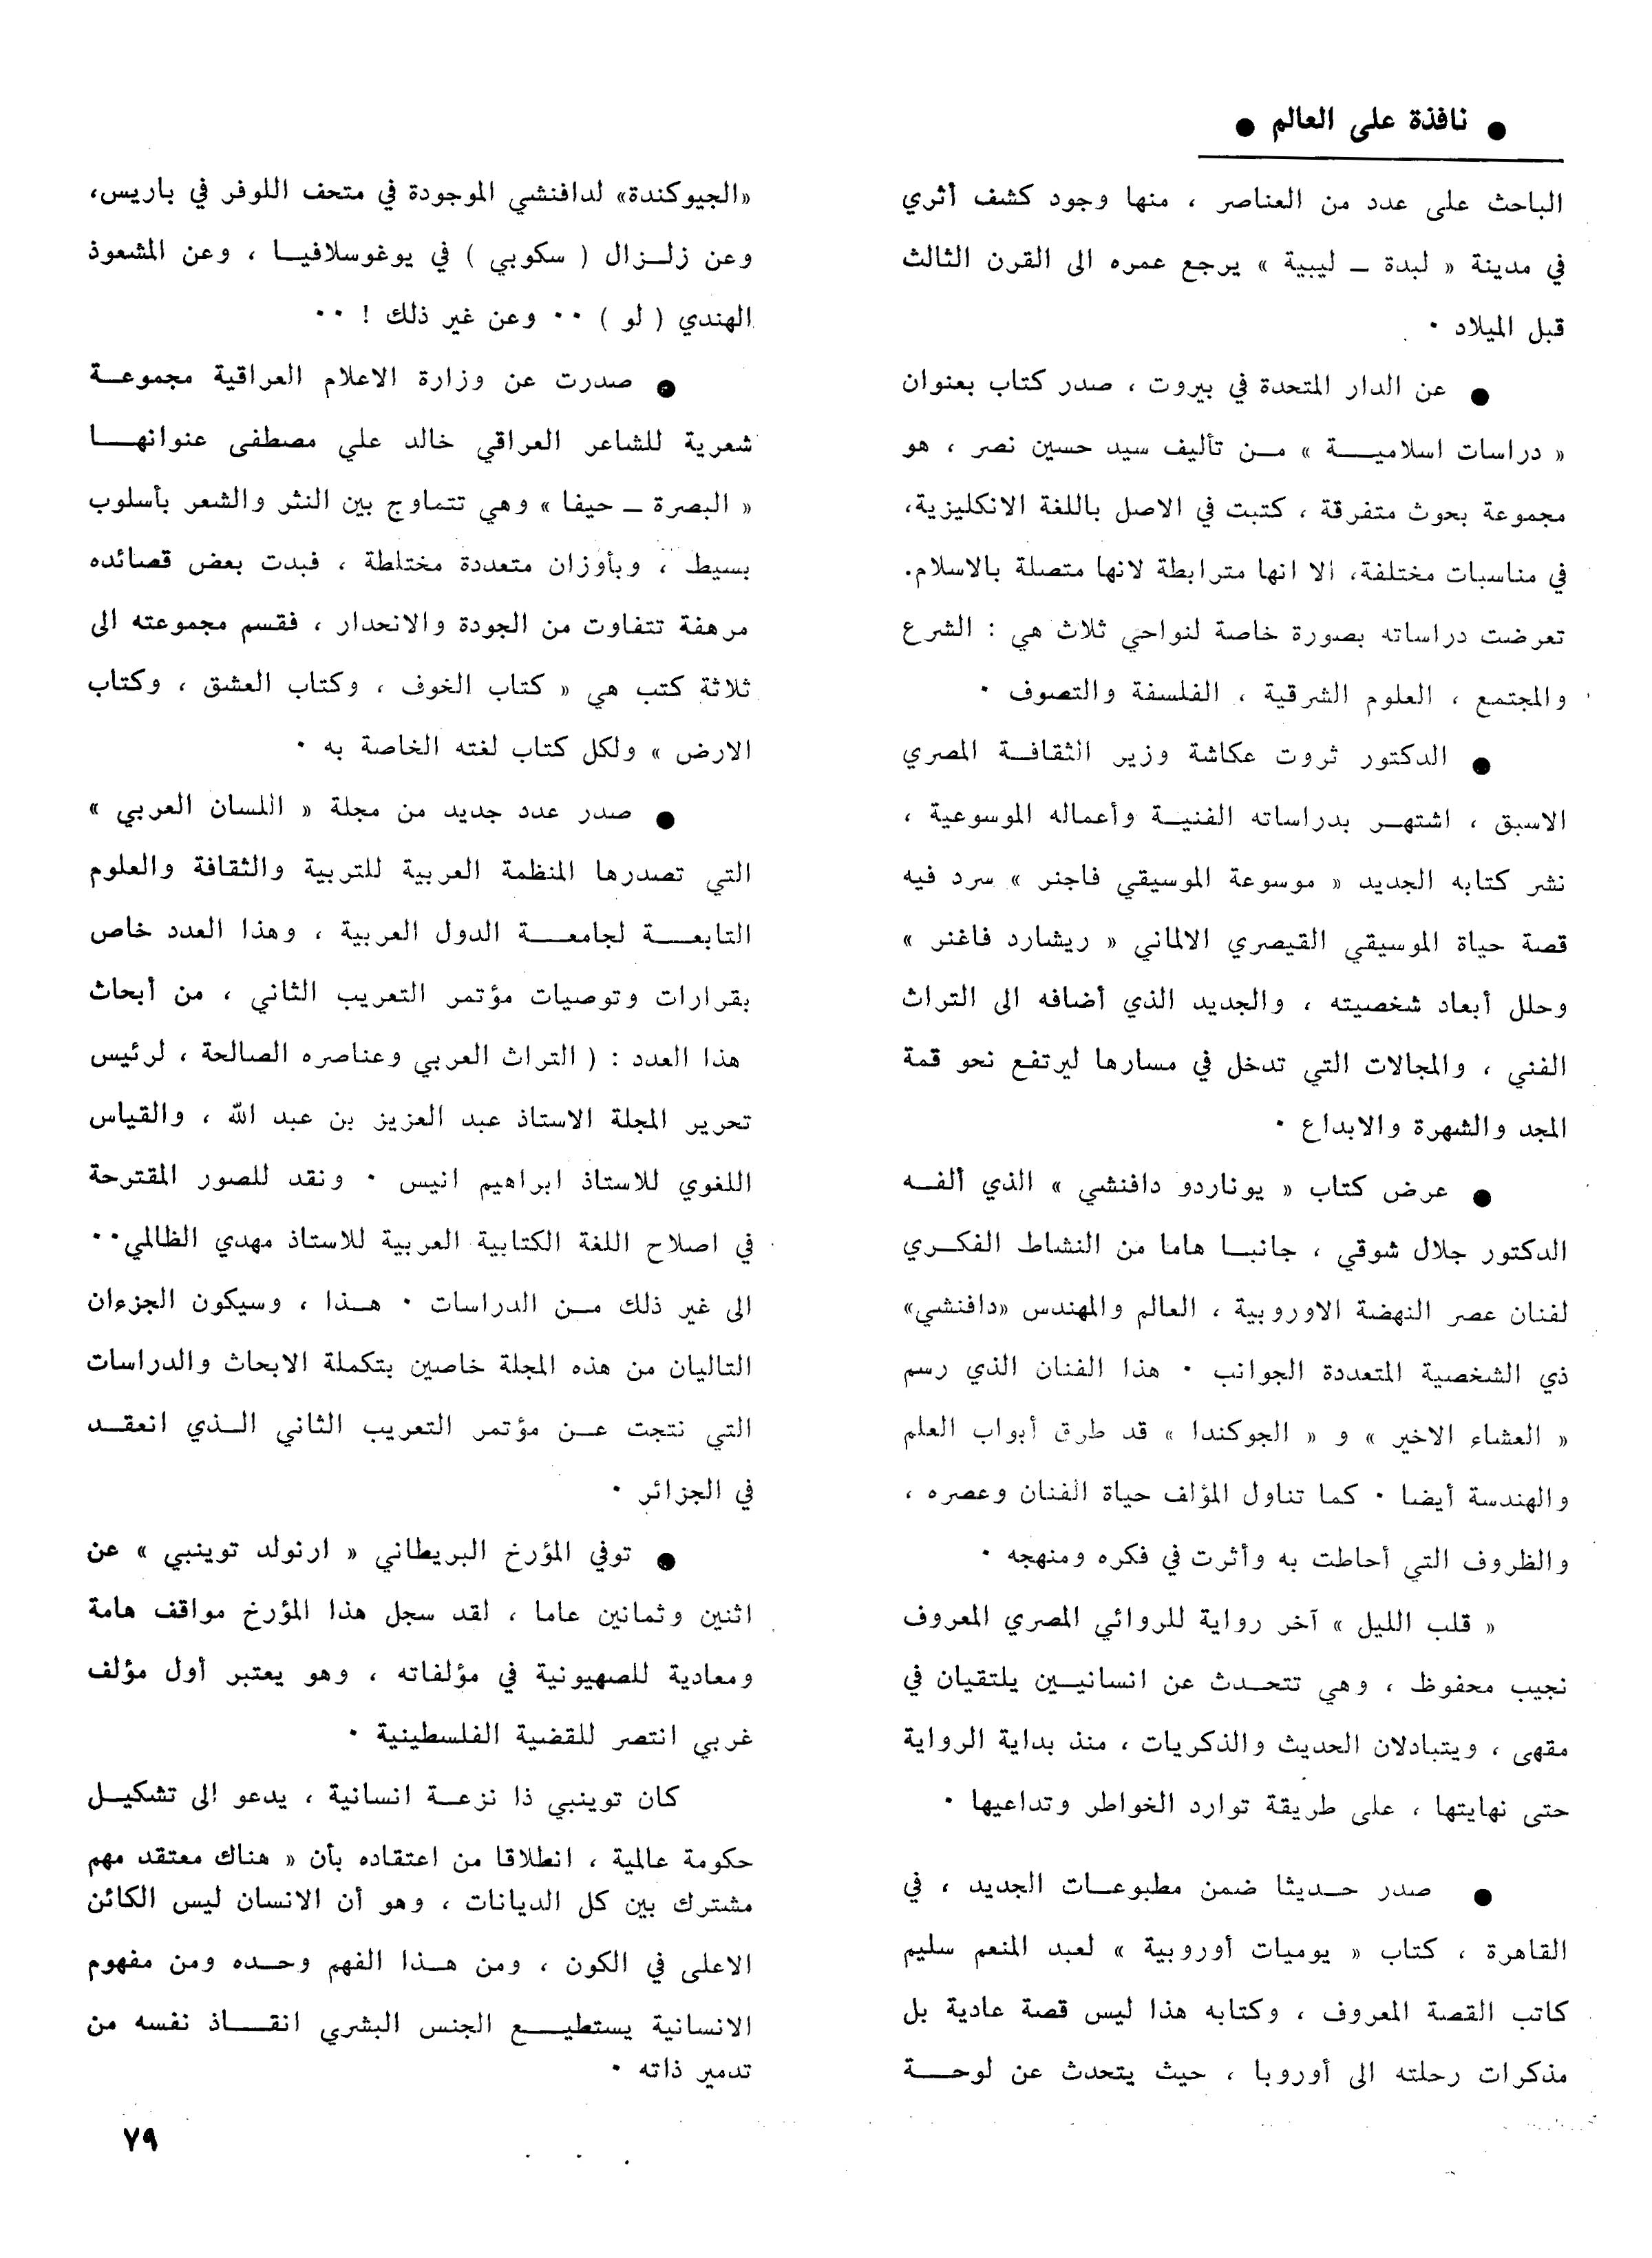 ● نافذة على العالم ●
الباحث على عدد من العناصر ، منها وجود كشف أثري
في مدينة « لبدة ــ ليبية » يرجع عمره الى القرن الثالث
قبل الميلاد ٠
● عن الدار المتحدة في بيروت ، صدر كتاب بعنوان
« دراسات اسلاميـــة » مــن تأليف سيد حسين نصر ، هو
مجموعة بحوث متفرقة ، كتبت في الاصل باللغة الانكليزية،
في مناسبات مختلفة، الا انها مترابطة لانها متصلة بالاسلام.
تعرضت دراساته بصورة خاصة لنواحي ثلاث هي : الشرع
والمجتمع ، العلوم الشرقية ، الفلسفة والتصوف ٠
● الدكتور ثروت عكاشة وزير الثقافــة المصري
الاسبق ، اشتهــر بدراساته الفنيــة وأعماله الموسوعية ،
نشر كتابه الجديد « موسوعة الموسيقي فاجنر » سرد فيه
قصة حياة الموسيقي القيصري الالماني « ريشارد فاغنر »
وحلل أبعاد شخصيته ، والجديد الذي أضافه الى التراث
الفني ، والمجالات التي تدخل في مسارها ليرتفع نحو قمة
المجد والشهرة والابداع ٠
● عرض كتاب « يوناردو دافنشي » الذي ألفــه
الدكتور جلال شوقي ، جانبــا هاما من النشاط الفكــري
لفنان عصر النهضة الاوروبية ، العالم والمهندس «دافنشي»
ذي الشخصية المتعددة الجوانب ٠ هذا الفنان الذي رسم
« العشاء الاخير » و « الجوكندا » قد طرق أبواب العلم
والهندسة أيضا ٠ كما تناول المؤلف حياة الفنان وعصره ،
والظروف التي أحاطت به وأثرت في فكره ومنهجه ٠
« قلب الليل » آخر رواية للروائي المصري المعروف
نجيب محفوظ ، وهي تتحــدث عن انسانيــين يلتقيان في
مقهى ، ويتبادلان الحديث والذكريات ، منذ بداية الرواية
حتى نهايتها ، على طريقة توارد الخواطر وتداعيها ٠
● صدر حــديثا ضمن مطبوعــات الجديد ، في
القاهرة ، كتاب « يوميات أوروبية » لعبد المنعم سليم
كاتب القصة المعروف ، وكتابه هذا ليس قصة عادية بل
مذكرات رحلته الى أوروبا ، حيث يتحدث عن لوحـــة
«الجيوكندة» لدافنشي الموجودة في متحف اللوفر في باريس،
وعن زلــزال ( سكوبي ) في يوغوسلافيــا ، وعن المشعوذ
الهندي ( لو ) ٠٠ وعن غير ذلك ! ٠٠
● صدرت عن وزارة الاعلام العراقية مجموعــة
شعرية للشاعر العراقي خالد علي مصطفى عنوانهـــا
« البصرة ــ حيفا » وهي تتماوج بين النثر والشعر بأسلوب
بسيط ، وبأوزان متعددة مختلطة ، فبدت بعض قصائده
مرهفة تتفاوت من الجودة والانحدار ، فقسم مجموعته الى
ثلاثة كتب هي « كتاب الخوف ، وكتاب العشق ، وكتاب
الارض » ولكل كتاب لغته الخاصة به ٠
● صدر عدد جديد من مجلة « اللسان العربي »
التي تصدرها المنظمة العربية للتربية والثقافة والعلوم
التابعـــة لجامعـــة الدول العربية ، وهذا العدد خاص
بقرارات وتوصيات مؤتمر التعريب الثاني ، من أبحاث
هذا العدد : ( التراث العربي وعناصره الصالحة ، لرئيس
تحرير المجلة الاستاذ عبد العزيز بن عبد الله ، والقياس
اللغوي للاستاذ ابراهيم انيس ٠ ونقد للصور المقترحة
في اصلاح اللغة الكتابية العربية للاستاذ مهدي الظالمي٠٠
الى غير ذلك مــن الدراسات ٠ هــذا ، وسيكون الجزءان
التاليان من هذه المجلة خاصين بتكملة الابحاث والدراسات
التي نتجت عــن مؤتمر التعريب الثاني الــذي انعقــد
في الجزائر ٠
● توفي المؤرخ البريطاني « ارنولد توينبي » عن
اثنين وثمانين عاما ، لقد سجل هذا المؤرخ مواقف هامة
ومعادية للصهيونية في مؤلفاته ، وهو يعتبر أول مؤلف
غربي انتصر للقضية الفلسطينية ٠
كان توينبي ذا نزعــة انسانية ، يدعو الى تشكيــل
حكومة عالمية ، انطلاقا من اعتقاده بأن « هناك معتقد مهم
مشترك بين كل الديانات ، وهو أن الانسان ليس الكائن
الاعلى في الكون ، ومن هــذا الفهم وحــده ومن مفهوم
الانسانية يستطيـــع الجنس البشري انقـــاذ نفسه من
تدمير ذاته ٠
٧٩